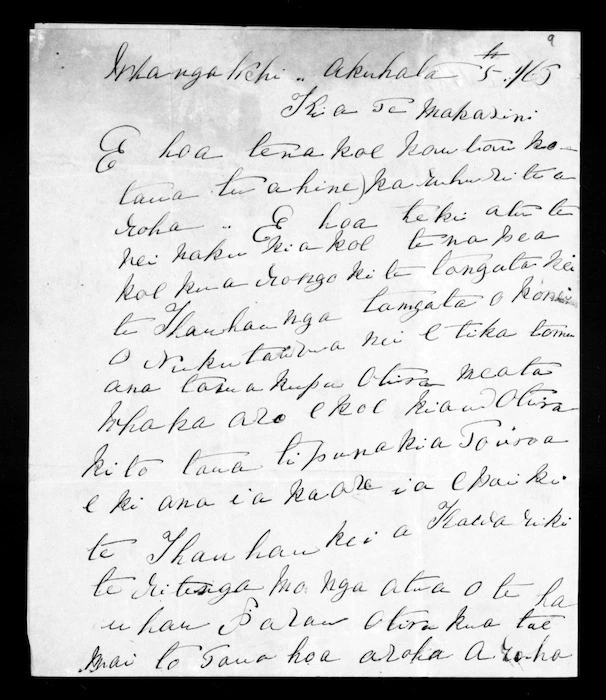 9
Whangatichi .. Akuhata 5th /65
Kia Te Makarini
E hoa tena koe korua tou ko-
taua tuahine) ka nui te a
roha .. E hoa he ki atu te
nei naku kia koe tena pea
koe kua rongo ki te tangata kei
te Hauhau nga tangata o konei
o Nukutaurua nei e tika tonu
ana taua kupu Otira meata
whaka aro e koe kiau Otira
ki to taua tipuna kia Toiroa
e ki ana ia kaore ia e pai ki
te Hauhau kei a Kawariki
te ritenga mo nga atua o te ha
uhau Parau Otira kua tae
mai to Taua hoa aroha Aroha